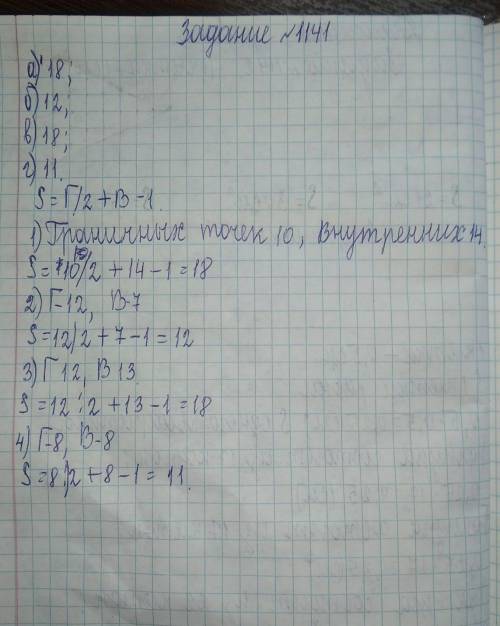 Задание №1141
а) 18;
б) 12;
в) 18;
г) 11.
S = Г/2 + В - 1.
1) Граничных точек 10, Внутренних 14.
S = 10/2 + 14 - 1 = 18
2) Г-12, В-7
S = 12/2 + 7 - 1 = 12
3) Г 12, В 13.
S = 12 : 2 + 13 - 1 = 18
4) Г-8, В-8
S = 8/2 + 8 - 1 = 11.